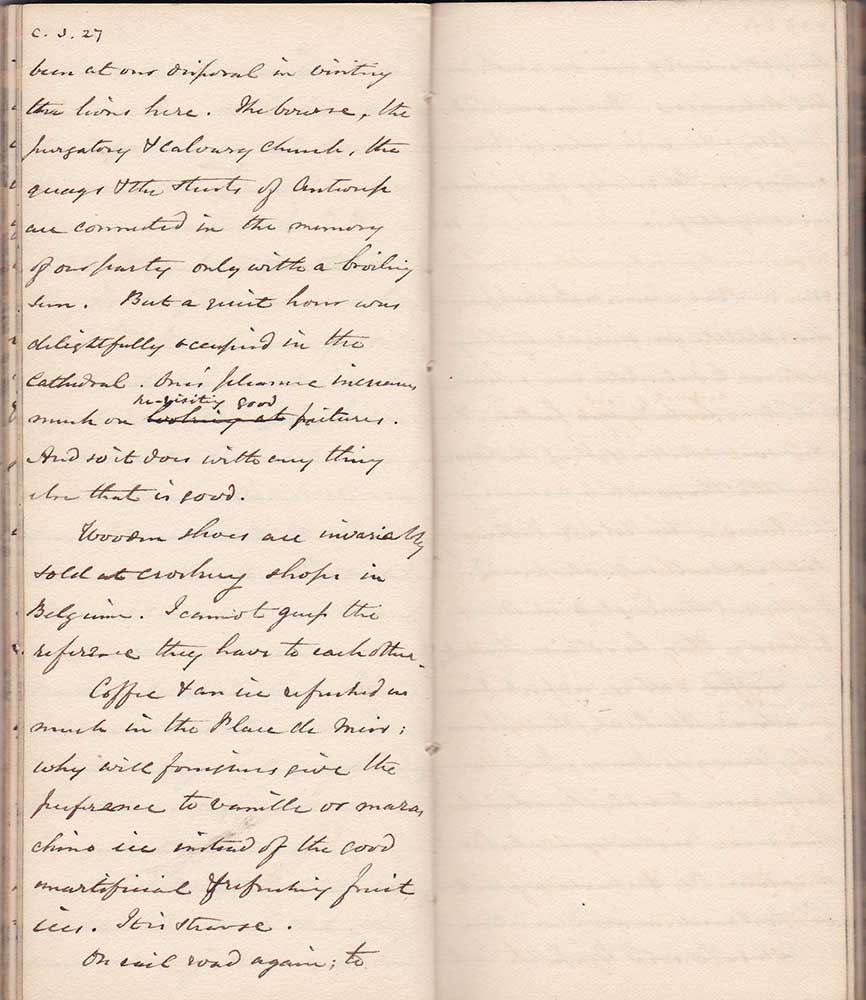 C. J. 27
been at our disposal in visiting
the lions here. The bourse, the
purgatory & Calvary Church, the
quays & the streets of Antwerp
are connected in the memory
of our party only with a broiling
sun. But a quiet hour was
delightfully occupied in the
Cathedral. One's pleasure increases
re-visiting good
much on looking at pictures.
And so it does with any thing
else that is good.
Wooden shoes are invariably
sold at crockery shops in
Belgium. I cannot guess the
reference they have to each other.
Coffee & an ice refreshed us
much in the Place de Meir;
why will foreigners give the
preference to vanille or maras
chino ice instead of the good
unartificial & refreshing fruit
ices. It is strange.
On rail road again; to